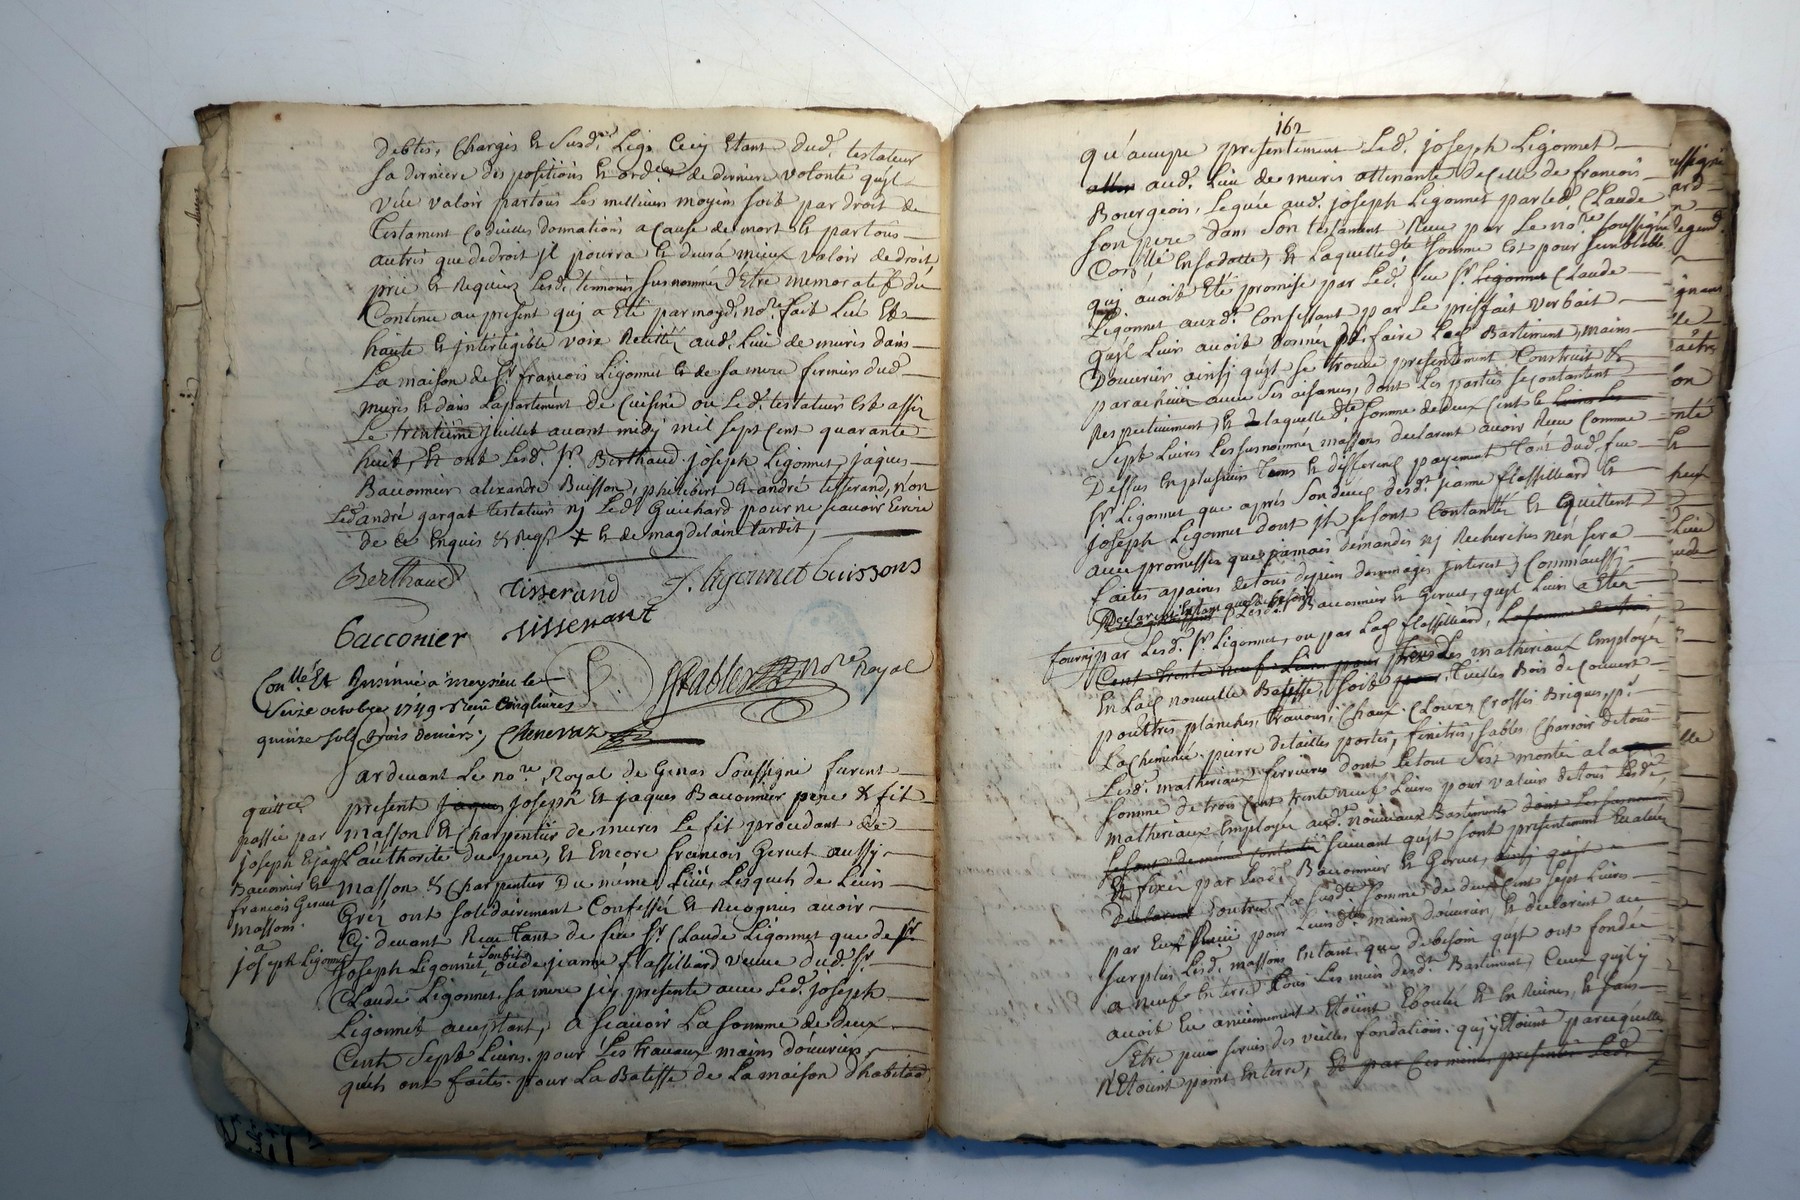 debtes, Charges et Susd. Legs Cecy Etant dud. testateur
Sa derniere dispositions et ord. de derniere volonté qu'jl
veu valoir partous Les meilleurs moyens soit par droit de
testament Codicilles donnations a Cause de mort et partous
autres que de droit jl pourra et devra mieux valoir de droit
prie et Requiers Lesd. temoins susnommés d'Etre memoratif du
Contenu au present quj a Eté par moyd. no.re fait Leu Et
haute et jntelegible voix Recitté aud. Lieu de muris dans
La maison de Sr. francois Ligonnet et de sa mere fermiers dud.
muris et dans Lapartement de Cuisine ou Led. testateur Est assis
Le trentieme juillet avant midy mil sept Cent quarante
huit, Et ont Lesd. Sr. Berthaud joseph Ligonnet, jaques
Baconnier alexandre Buisson, philibert et andré tisserand, non
Led. andré gargat testateur nj Led. Guichard pour ne scavoir Ecrire
de ce Enquis et Reqs. + et de magdelaine tardit,
Berthaud tisserand J. ligonnet buissons
bacconier tisserant
Con.llé Et Insinué a meysieu le
Seize octobre 1749 Receu Cinq livres
quinze sols trois deniers, Chenevaz
no.re Royal
Pardevant Le no.re Royal de Genas Soussigné furent
present jaques joseph et jaques Baconnier pere et fit
masson et Charpentier de mures Le fit procedant de
L'authorité du pere, et Encore francois Gervet aussy
masson et Charpentier Du même Lieu, Lesquels de Leurs
Gréz ont solidairement Confessés et Recognus avoir
Cy devant Receu tant de feu Sr. Claude Ligonnet que de Sr
joseph Ligonnet son fils ou de jeanne flassilliard veuve dud. Sr.
Claude Ligonnet sa mere jcy presente avec Led. joseph
Ligonnet acceptant, a scavoir La somme de deux
Cents Sept Livres pour Les travaux mains d'ouvriers
quils ont faites pour La Batisse de La maison d'habitaon
quittce
passée par
joseph et jaqs
Baconnier et
francois Gervet
massons
a
joseph Ligonnet
162
qu'accupe presentement Led. joseph Ligonnet
aud. Lieu de muris attenante de celle de francois
Bourgeois, Leguée aud. joseph Ligonnet par led. Claude
son pere dans Son testament Receu par Le no.re soussigné
quj avoit Eté promise par Led. feu Sr. Ligonnet Claude
Ligonnet auxd. Confessant par Le prixfait verbait
qu'jl Leurs avoit donnés pr. faire Lad. Bastiment, mains
d'ouvriers ainsj qu'jl se trouve presentement Construit et
parachevée avec Ses aisances, dont Les parties se contantent
Respectivement, et de laquelle dte somme de deux Cent et Livres Les
Sept Livres Les susnommés massons declarent avoir Receu Comme
Dessus En plusieurs tems et differens payement tant dud. feu
Sr. Ligonnet que après Son deces desd. jeanne flassilliard et
joseph Ligonnet dont jls se sont Contantés et Quittent
avec promesses que jamais demandes nj Recherches n'en sera
faites apaines de tous depens dommages jnterest, Comm'aussy
Declarent Entant que de besoin Lesd. Baconnier et Gervet, qu'jl Leurs a Etés
fourny par Lesd. Sr. Ligonnet, ou par Lad. flassilliard, La somme de trois
Cent trente neuf Livres pour tous Les matheriaux Employés
En Lad. nouvelle Batisse, soit pour, tuilles Bois de Couvert
pouttres, planches, travons, Chaux, Clouxs Crosses Briques, pr.
La cheminée, pierre de tailles portes, fenetres, sables, Charroir de tous
Lesd. matheriaux ferrures dont Le tout S'est montés a la
Somme de trois Cent trente neuf Livres pour valeur de tous Lesd.
matheriaux Employés aud. nouveaux Bastiments dont Les
suivant qu'jl sont presentement Evalués
et fixés par Lesd. Baconnier et Gervet, ainsj qu'jl
Declarent outres La susdte somme de deux Cent sept Livres
par Eux Receu pour Leurs dte. mains d'ouvriers, et declarent au
surplus Lesd. massons Entant, que de besoin qu'jl ont fondée
a neuf En terre tous Les murs desd. Bastiment, Ceux qu'jl y
avoit Eu anciennement Etoient Eboulés et En Ruines, et sans
s'Etre peuee servis des vieilles fondations quj y Etoient parcequ'elles
n'Etoient point En terre, Et par Ces mêmes presentes Led.